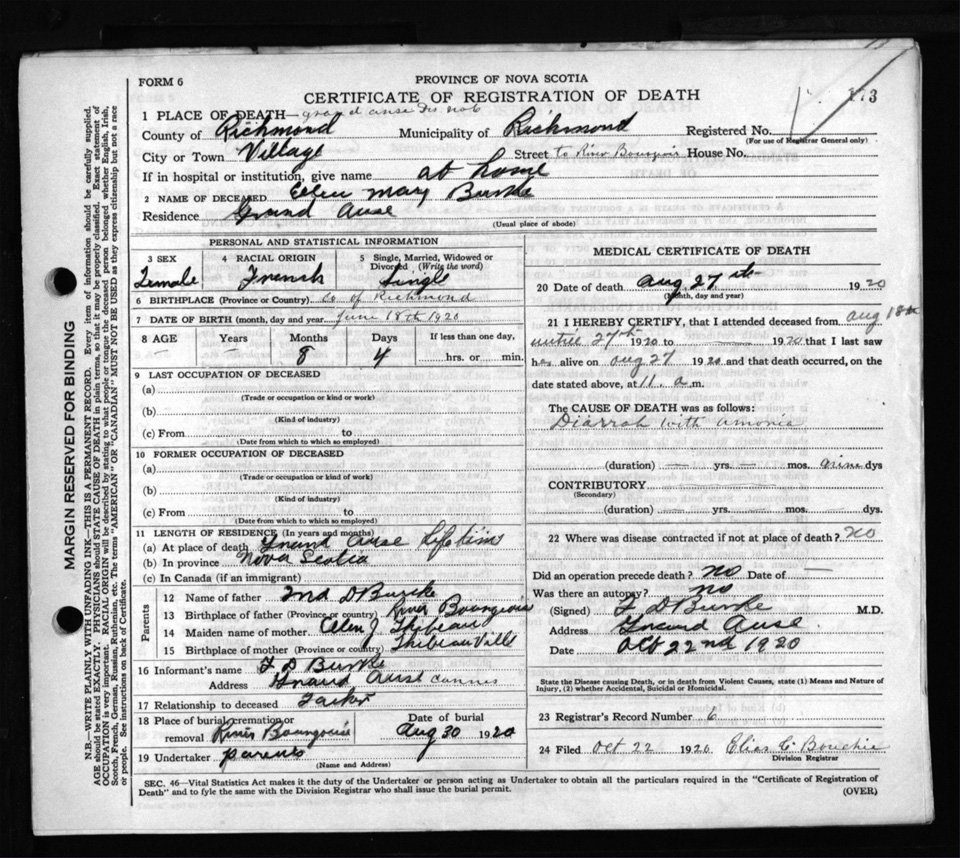 FORM 6
PROVINCE OF NOVA SCOTIA
CERTIFICATE OF REGISTRATION OF DEATH
173
1 PLACE OF DEATH—grand anse
County of Richmond Municipality of Richmond Registered No.
(For use of Registrar General only)
City or Town Village Street to River Bourgeois House No.
If in hospital or institution, give name at home
2 NAME OF DECEASED Ellen Mary Burke
Residence Grand Anse
(Usual place of abode)
PERSONAL AND STATISTICAL INFORMATION
3 SEX
Female
4 RACIAL ORIGIN
French
5 Single, Married, Widowed or Divorced (Write the word)
Single
6 BIRTHPLACE (Province or Country) Co of Richmond
7 DATE OF BIRTH (month, day and year) June 18th 1920
8 AGE Years Months Days If less than one day,
— — 8 4 hrs. or min.
9 LAST OCCUPATION OF DECEASED
(a)
(Trade or occupation or kind or work)
(b)
(Kind of industry)
(c) From to
(Date from which to which so employed)
10 FORMER OCCUPATION OF DECEASED
(a)
(Trade or occupation or kind of work)
(b)
(Kind of industry)
(c) From to
(Date from which to which so employed)
11 LENGTH OF RESIDENCE (In years and months)
(a) At place of death Grand Anse lifetim
(b) In province Nova Scotia
(c) In Canada (if an immigrant)
Parents
12 Name of father D Burke
13 Birthplace of father (Province or country) River Bourgeois
14 Maiden name of mother. Ellen J Thibeau
15 Birthplace of mother (Province or country) Thibeauville
16 Informant's name F D Burke
Address Grand Anse
17 Relationship to deceased
18 Place of burial, cremation or removal River Bourgeois
Date of burial
Aug 30 1920
19 Undertaker parents
(Name and Address)
MEDICAL CERTIFICATE OF DEATH
20 Date of death Aug 27th 1920
(Month, day and year)
21 I HEREBY CERTIFY, that I attended deceased from aug 18th
until 27th 1920 to — 1920 that I last saw
her alive on aug 27 1920 and that death occurred, on the
date stated above, at 11. a m.
The CAUSE OF DEATH was as follows:
Diarrah with amonia
(duration) — yrs. — mos. nine dys
CONTRIBUTORY
(Secondary)
(duration) — yrs. — mos. dys
22 Where was disease contracted if not at place of death? no
Did an operation precede death? no Date of —
Was there an autopsy? no
(Signed) F D Burke M.D.
Address Grand Anse
Date Oct 22nd 1920
State the Disease causing Death, or in death from Violent Causes, state (1) Means and Nature of Injury, (2) whether Accidental, Suicidal or Homicidal.
23 Registrar's Record Number 6
24 Filed Oct 22 1920 Elias C Bouchie
Division Registrar
SEC. 46—Vital Statistics Act makes it the duty of the Undertaker or person acting as Undertaker to obtain all the particulars required in the "Certificate of Registration of
Death" and to fyle the same with the Division Registrar who shall issue the burial permit.
(OVER)
MARGIN RESERVED FOR BINDING
N.B.—WRITE PLAINLY WITH UNFADING INK—THIS IS A PERMANENT RECORD. Every item of information should be carefully supplied.
AGE should be stated EXACTLY. PHYSICIANS should STATE CAUSE OF DEATH in plain terms, so that it may be properly classified. Exact statement of
OCCUPATION is very important. RACIAL ORIGIN will be described by stating to what people or tongue the deceased person belonged whether English, Irish,
Scotch, French, German, Russian, Ruthenian, etc. The terms "AMERICAN" or "CANADIAN" MUST NOT BE USED as they express citizenship but not a race
or people. See instructions on back of Certificate.